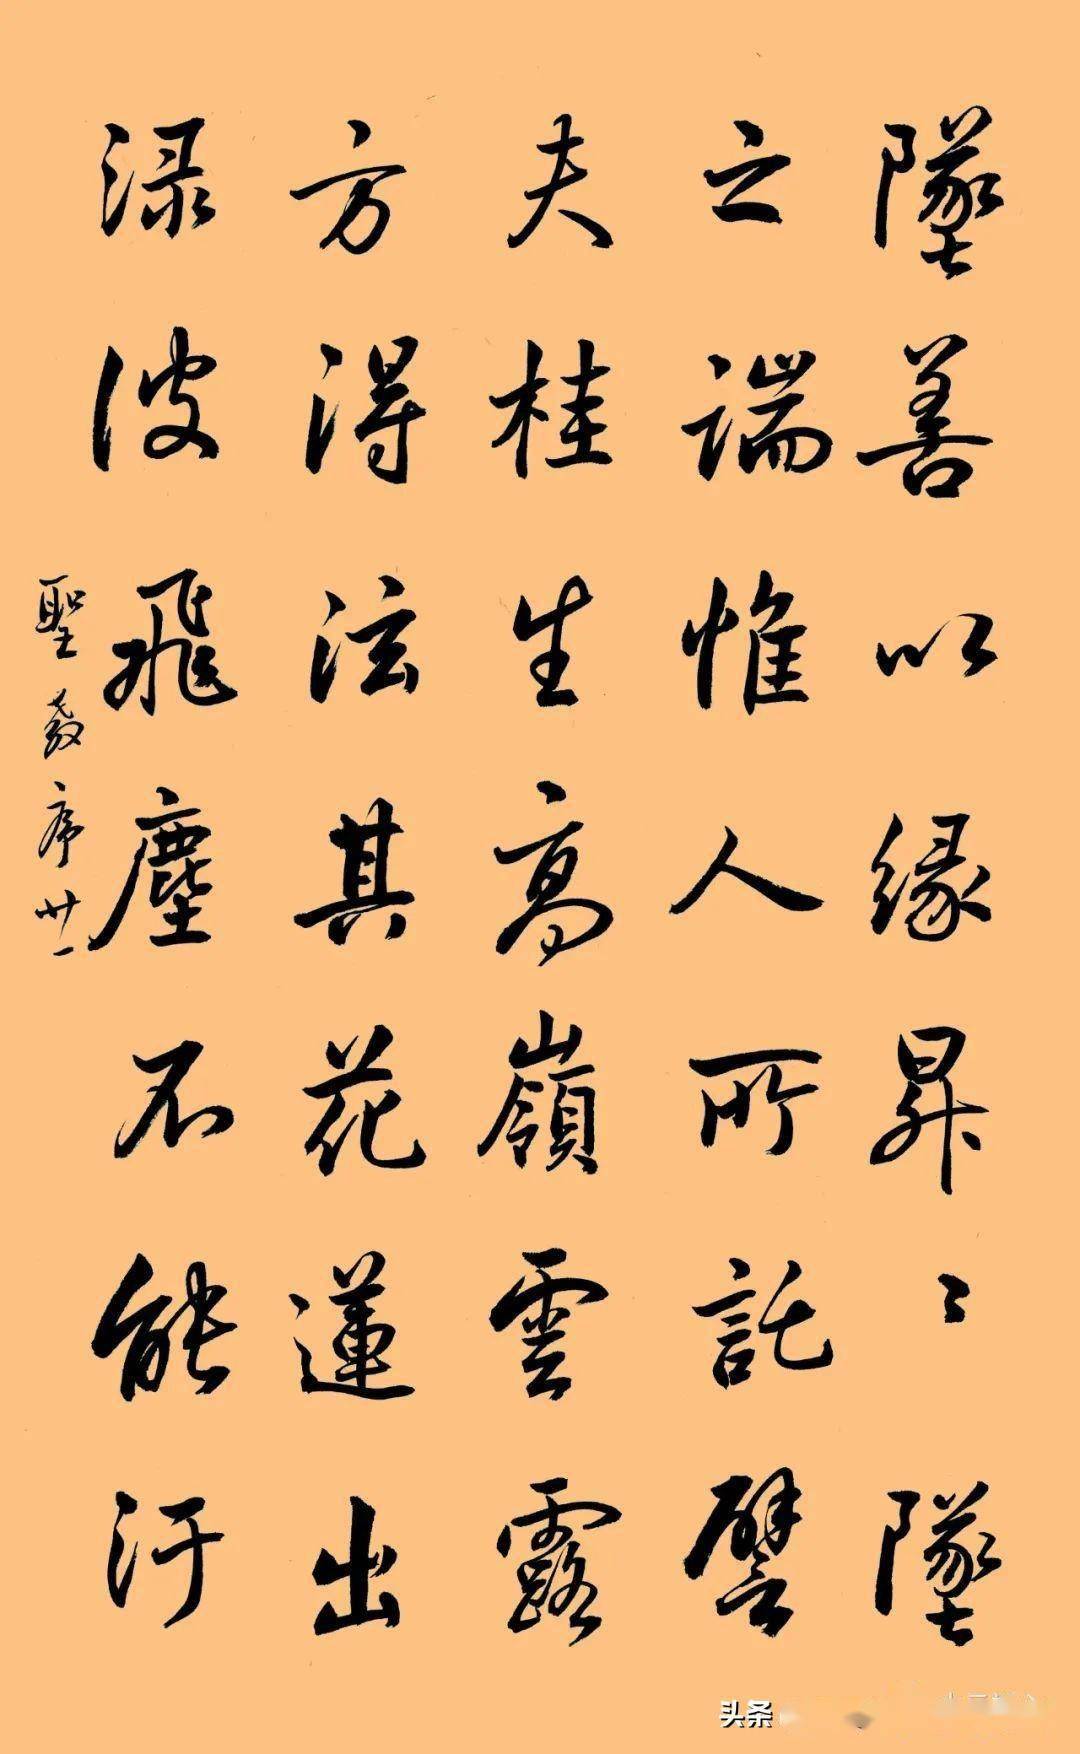 墜善以緣昇〻墜
之端惟人所託譬
夫桂生高嶺雲露
方得泫其花蓮出
渌波飛塵不能汙
聖教序廿一
头条